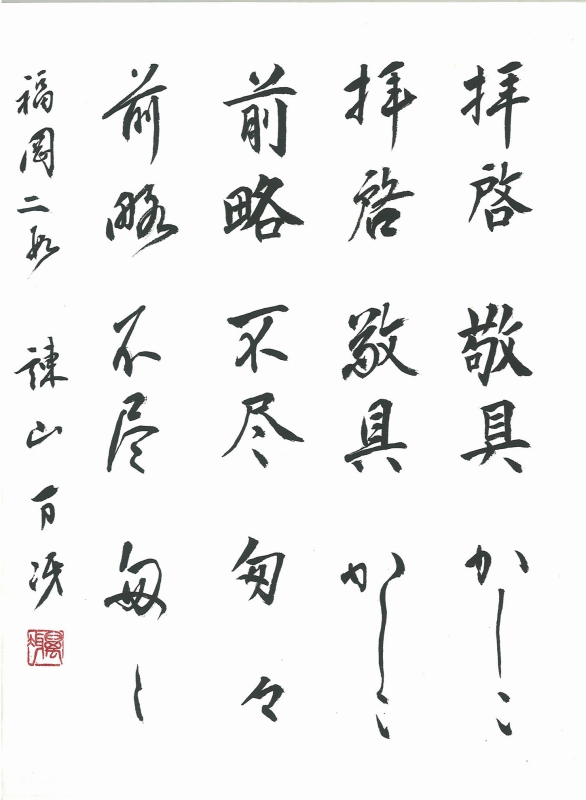 拝啓 敬具 かしこ
拝啓 敬具 かしこ
前略 不尽 匆々
前略 不尽 匆々
福岡二段 諫山万